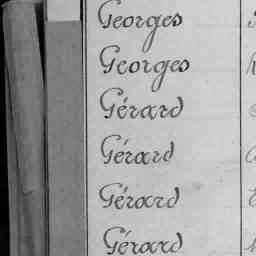 Georges
Georges
Gérard
Gérard
Gérard
Gérard